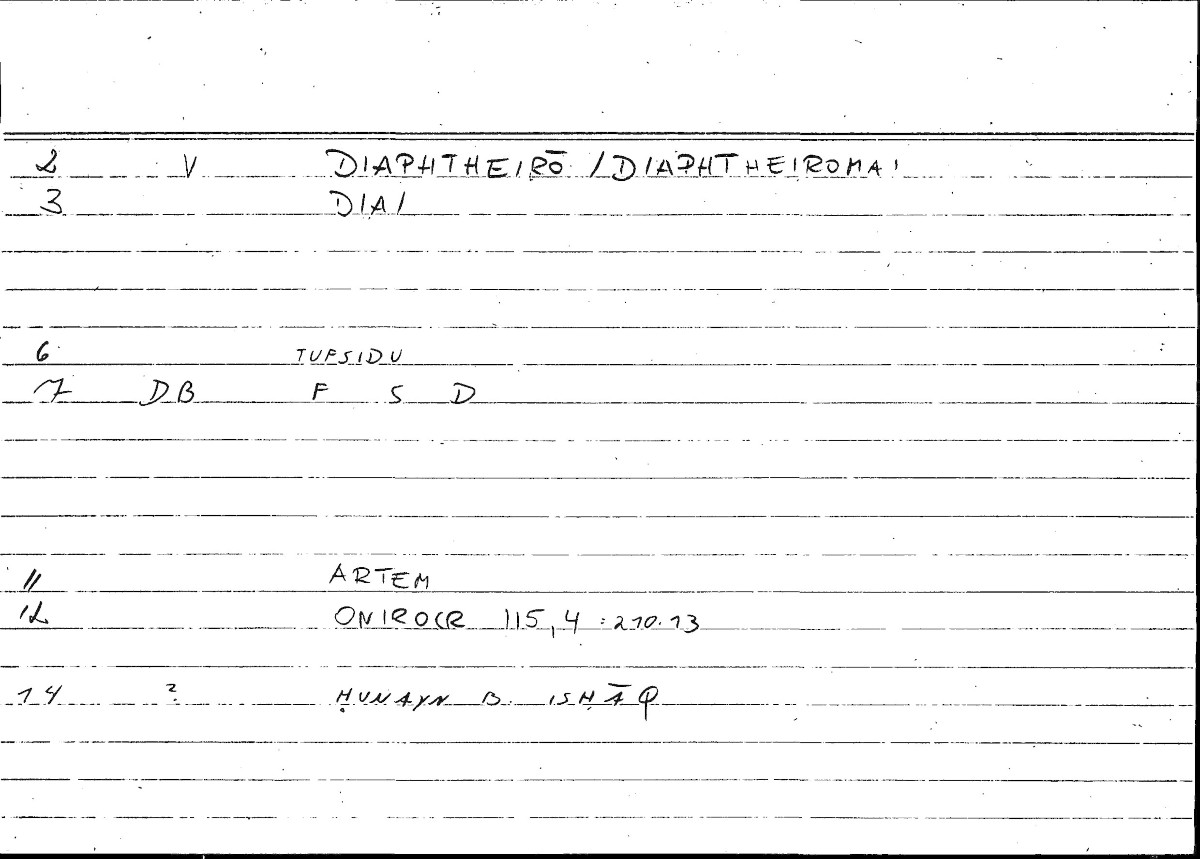 2 V DIAPHTHEIRŌ / DIAPHTHEIROMAI
3 DIA/
6 TUFSIDU
7 DB F S D
11 ARTEM
12 ONIROCR 115,4 : 210.13
14 ? ḤUNAYN B. ISḤĀQ